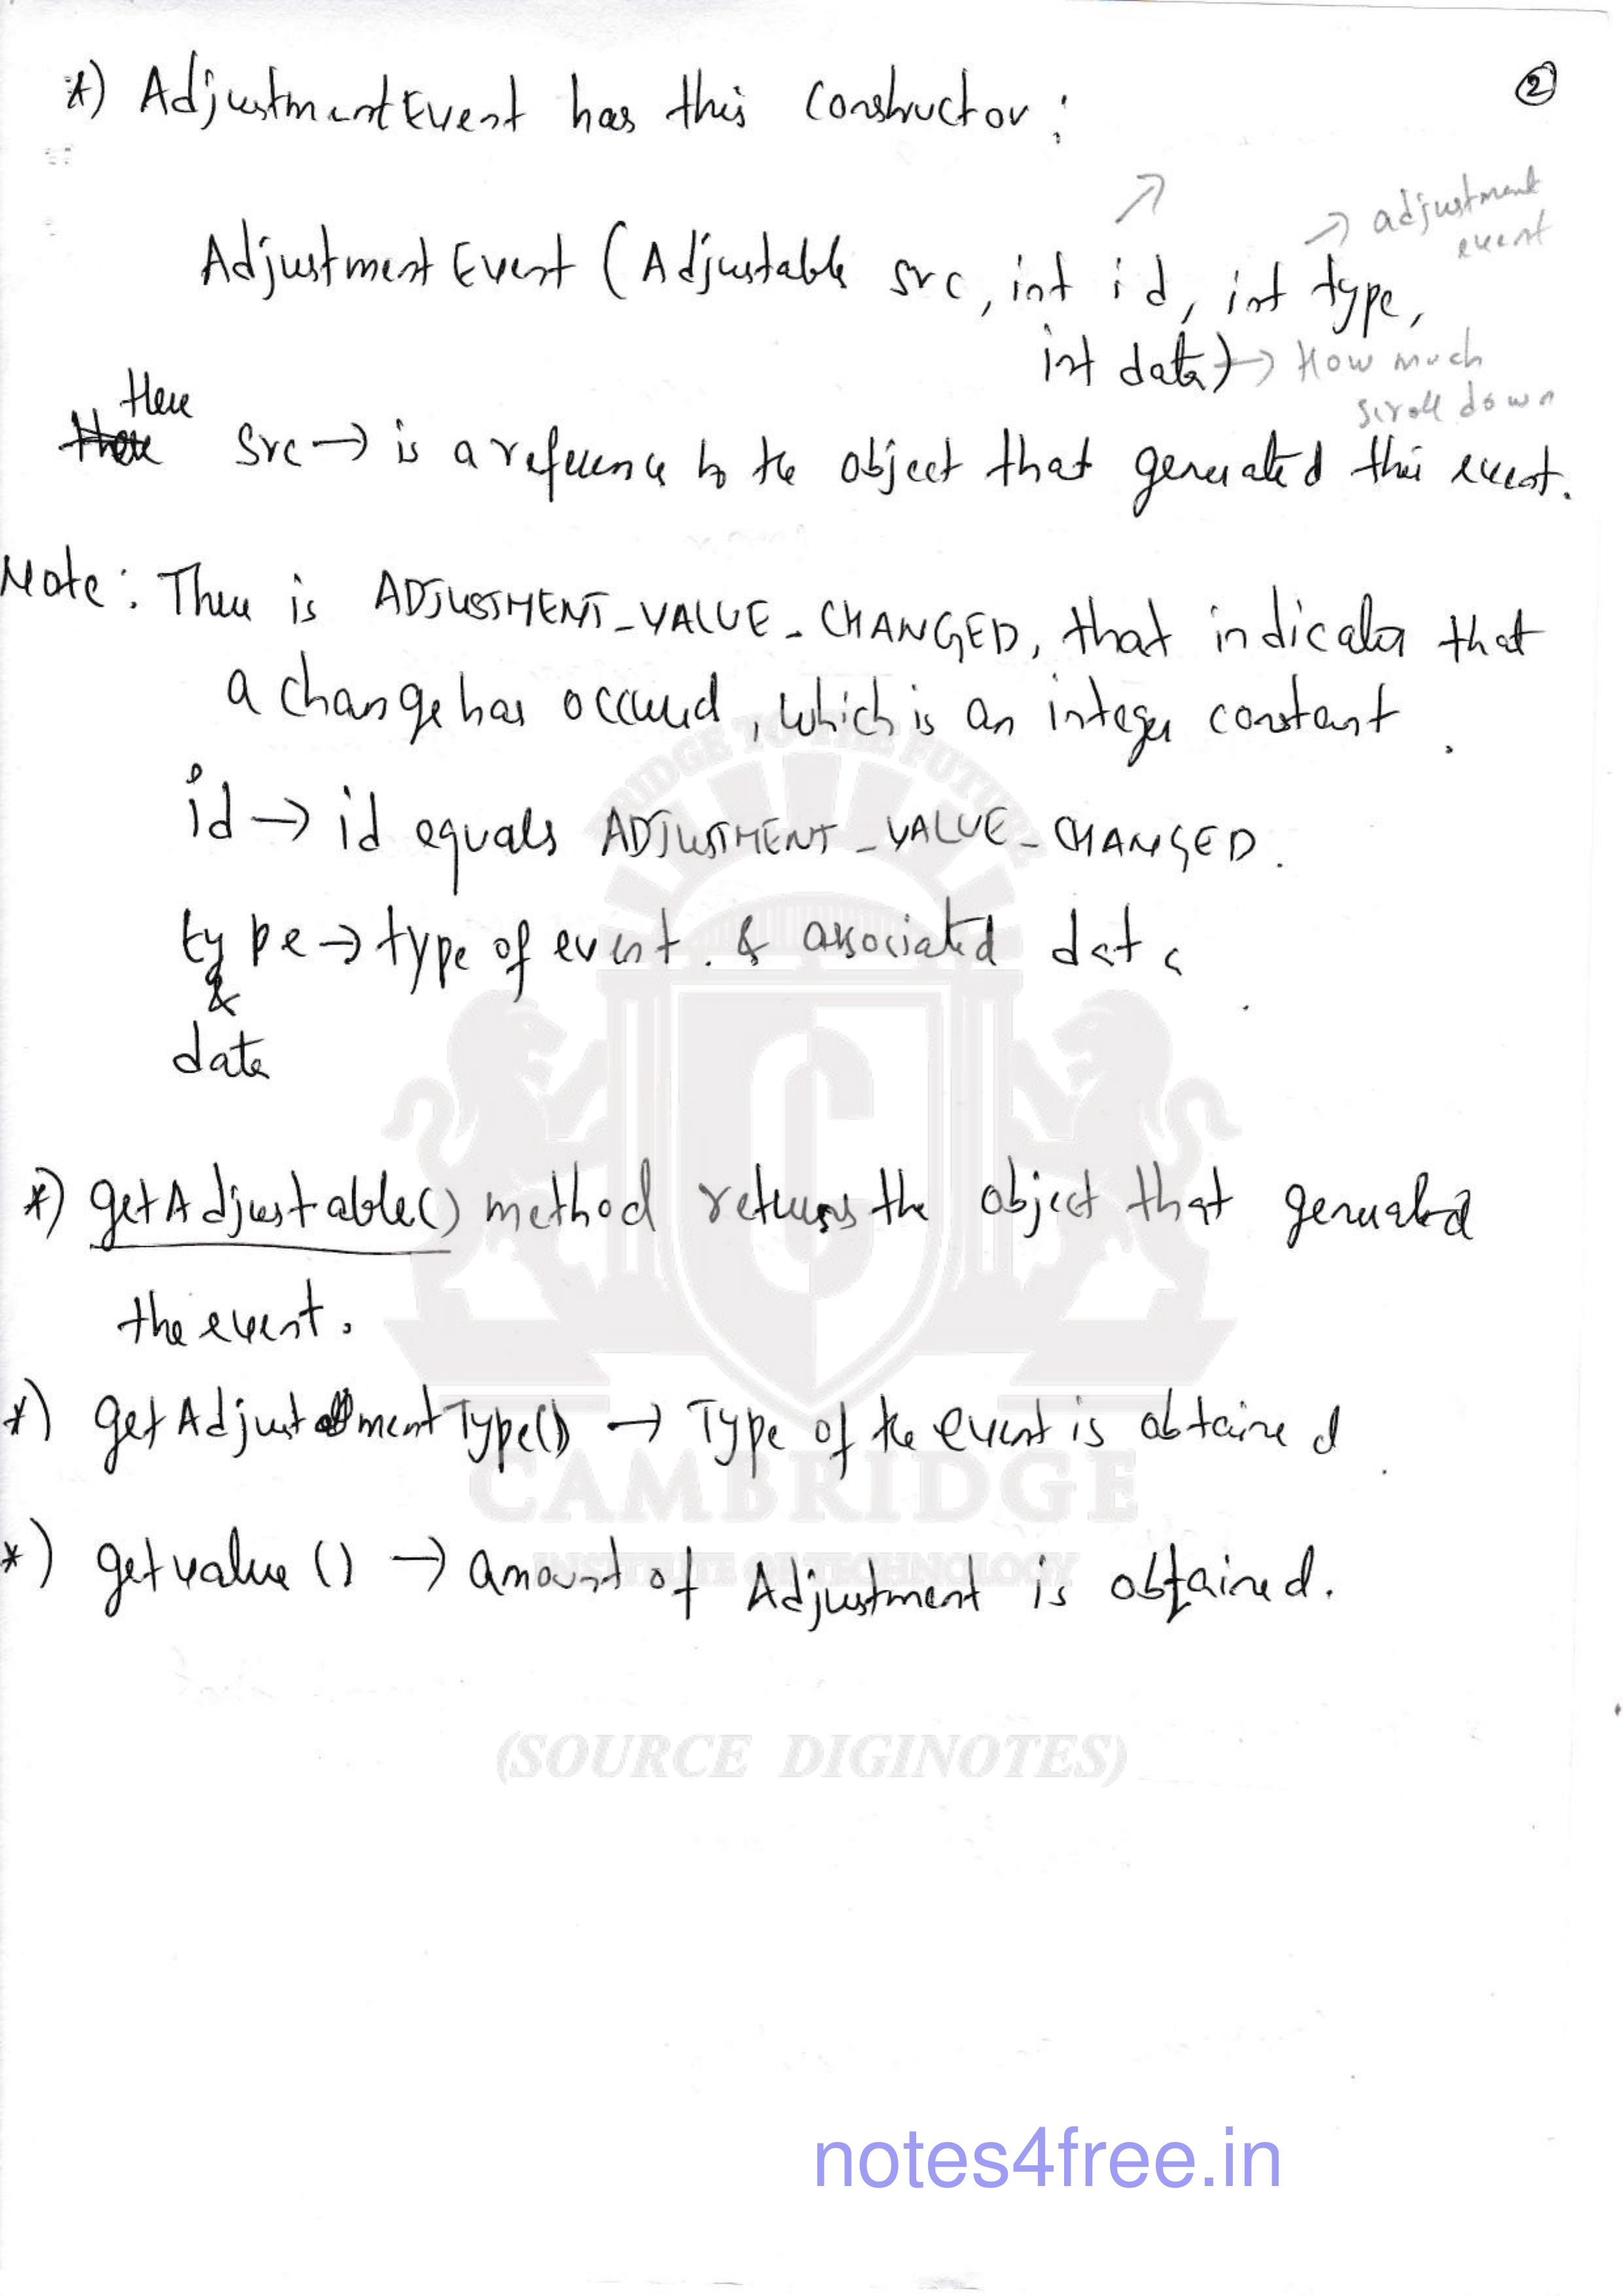 *) AdjustmentEvent has this constructor:
②
AdjustmentEvent (Adjustable src, int id, int type,
→ adjustment
event
int data) → How much
scroll down
Here
src → is a reference to the object that generated this event.
Note: There is ADJUSTMENT_VALUE_CHANGED, that indicates that
a change has occured, which is an integer constant.
id → id equals ADJUSTMENT_VALUE_CHANGED.
type → type of event. & associated data.
&
data
*) getAdjustable() method returns the object that generated
the event.
*) getAdjustmentType() → Type of the event is obtained.
*) getvalue () → amount of Adjustment is obtained.
BRIDGE TO THE FUTURE
CAMBRIDGE
INSTITUTE OF TECHNOLOGY
(SOURCE DIGINOTES)
notes4free.in